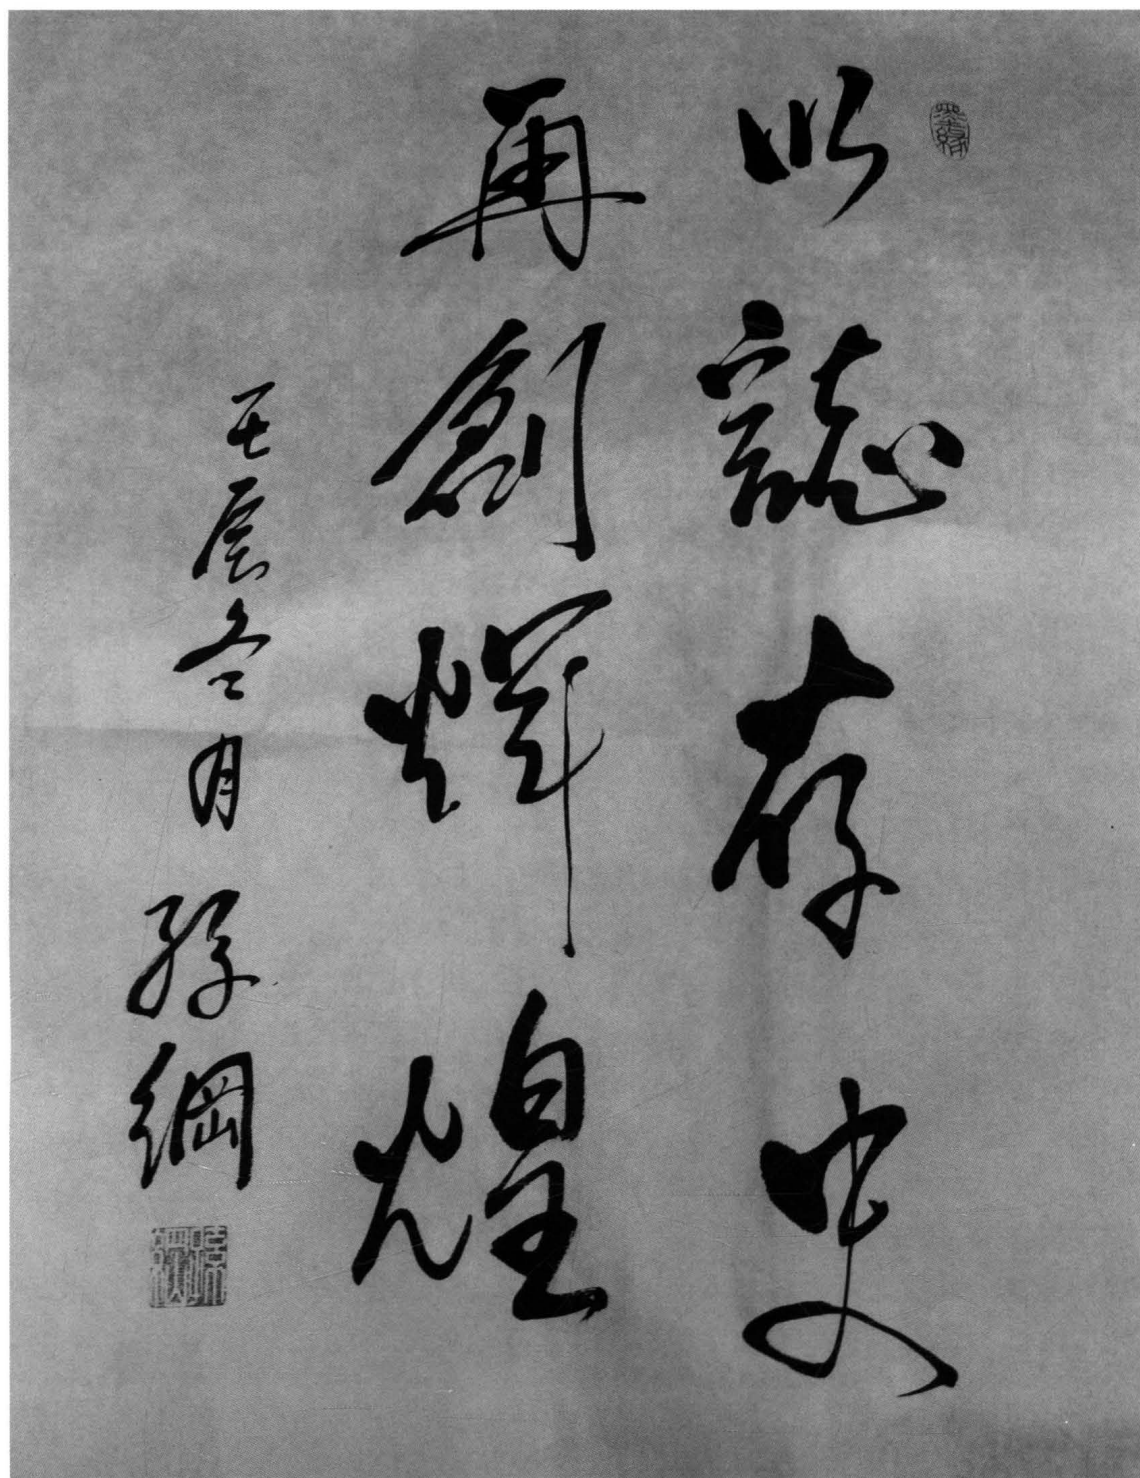 以誌存史
再創輝煌
壬辰冬月 孫綱